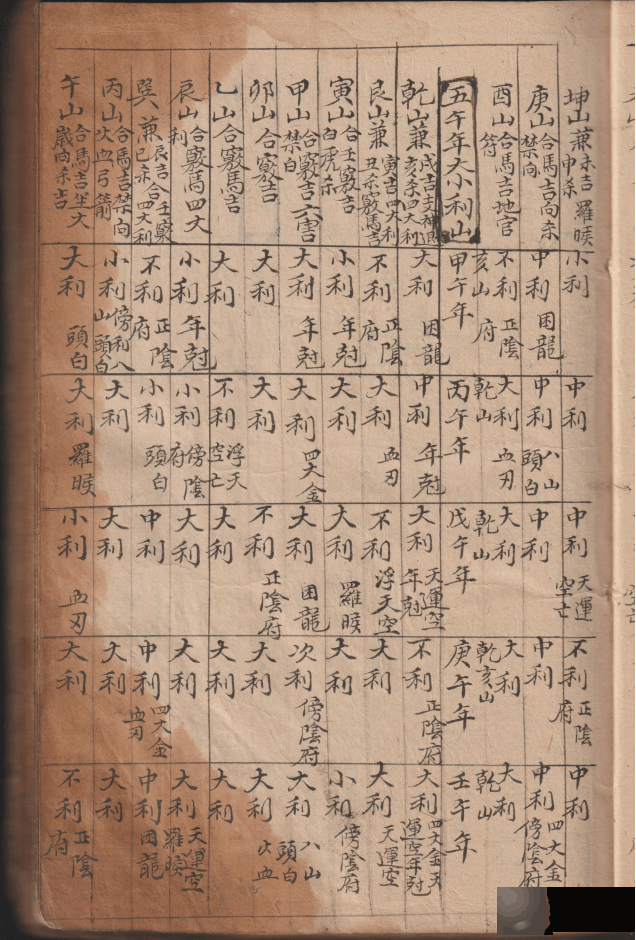 坤山兼未吉羅睺申杀
庚山合馬吉向杀禁向
酉山合馬吉地官符
五午年大小利山
乾山兼戌吉亥杀四大利
艮山兼寅吉四大利丑杀竅馬吉
寅山合壬竅吉白虎杀
甲山合竅吉六害禁白
卯山合竅吉
乙山合竅馬吉
辰山合竅馬四大利
巽兼辰吉合壬竅巳杀四大利
丙山合馬吉禁向火血弓箭
午山合馬吉坐大歲向杀吉
小利
中利困龍
不利正陰府
亥山
甲午年
大利困龍
不利正陰府
小利年尅
大利年尅
大利
大利
小利年尅
不利正陰府
小利傍利八山頭白
大利頭白
中利
中利八山頭白
大利血刃
乾山
丙午年
中利年尅
大利血刃
大利
大利四大金
大利
不利浮天空亡
小利傍陰府
小利頭白
大利
大利羅睺
中利天運空亡
中利
大利
乾山
戊午年
大利天運空年尅
不利浮天空
大利羅睺
大利困龍
不利正陰府
大利
大利
中利
大利
小利血刃
不利正陰府
中利
大利
乾亥山
庚午年
不利正陰府
大利
大利
次利傍陰府
大利
大利
大利
中利四大金血刃
大利
大利
中利
中利四大金傍陰府
大利
乾山
壬午年
大利四大金天運空年尅
大利天運空
小利傍陰府
大利八山頭白
大利火血
大利
大利天運空羅睺
中利困龍
大利
不利正陰府